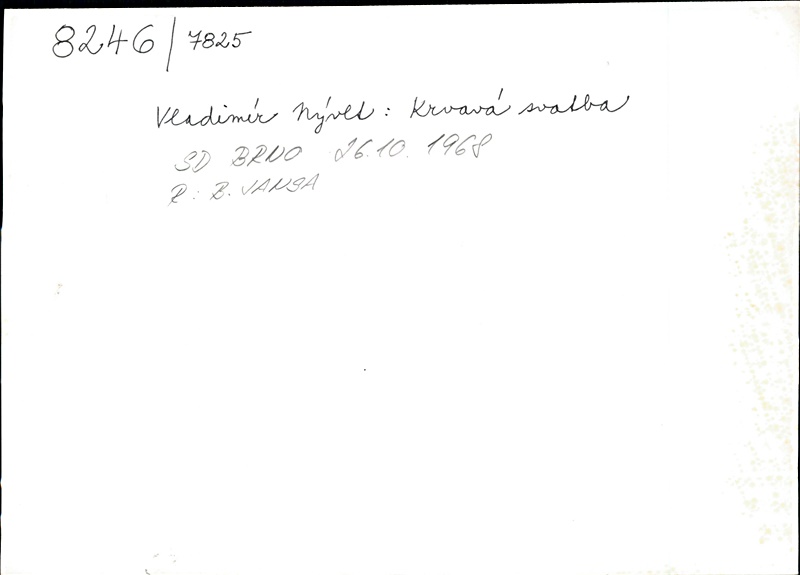 8246/7825
Vladimír Nývlt: Krvavá svatba
SD BRNO 26.10. 1968
R: B. VANSA